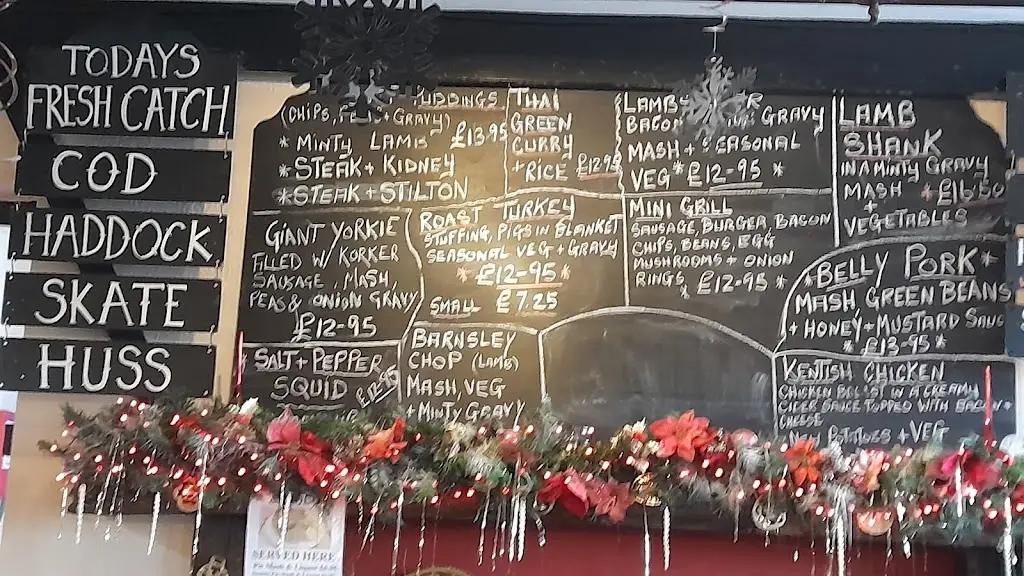 TODAYS
FRESH CATCH
COD
HADDOCK
SKATE
HUSS
PUDDINGS
(CHIPS, GRAVY)
* MINTY LAMB £13.95
* STEAK + KIDNEY
* STEAK + STILTON
THAI
GREEN
CURRY
+ RICE £12.95
LAMBS GRAVY
BACON
MASH + SEASONAL
VEG * £12-95 *
LAMB
SHANK
IN A MINTY GRAVY
MASH * £16.50
+
VEGETABLES
GIANT YORKIE
FILLED W/ KORKER
SAUSAGE, MASH,
PEAS & ONION GRAVY
£12-95
ROAST TURKEY
STUFFING, PIGS IN BLANKET
SEASONAL VEG + GRAVY
* £12-95 *
SMALL £7.25
MINI GRILL
SAUSAGE, BURGER, BACON
CHIPS, BEANS, EGG
MUSHROOMS + ONION
RINGS * £12-95 *
* BELLY PORK *
MASH GREEN BEANS
+ HONEY + MUSTARD
* £13-95 *
SALT + PEPPER
SQUID
BARNSLEY
CHOP (LAMB)
MASH, VEG
+ MINTY GRAVY
KENTISH CHICKEN
CHICKEN BREAST IN A CREAMY
CIDER SAUCE TOPPED WITH BACON +
CHEESE
POTATOES + VEG
SERVED HERE